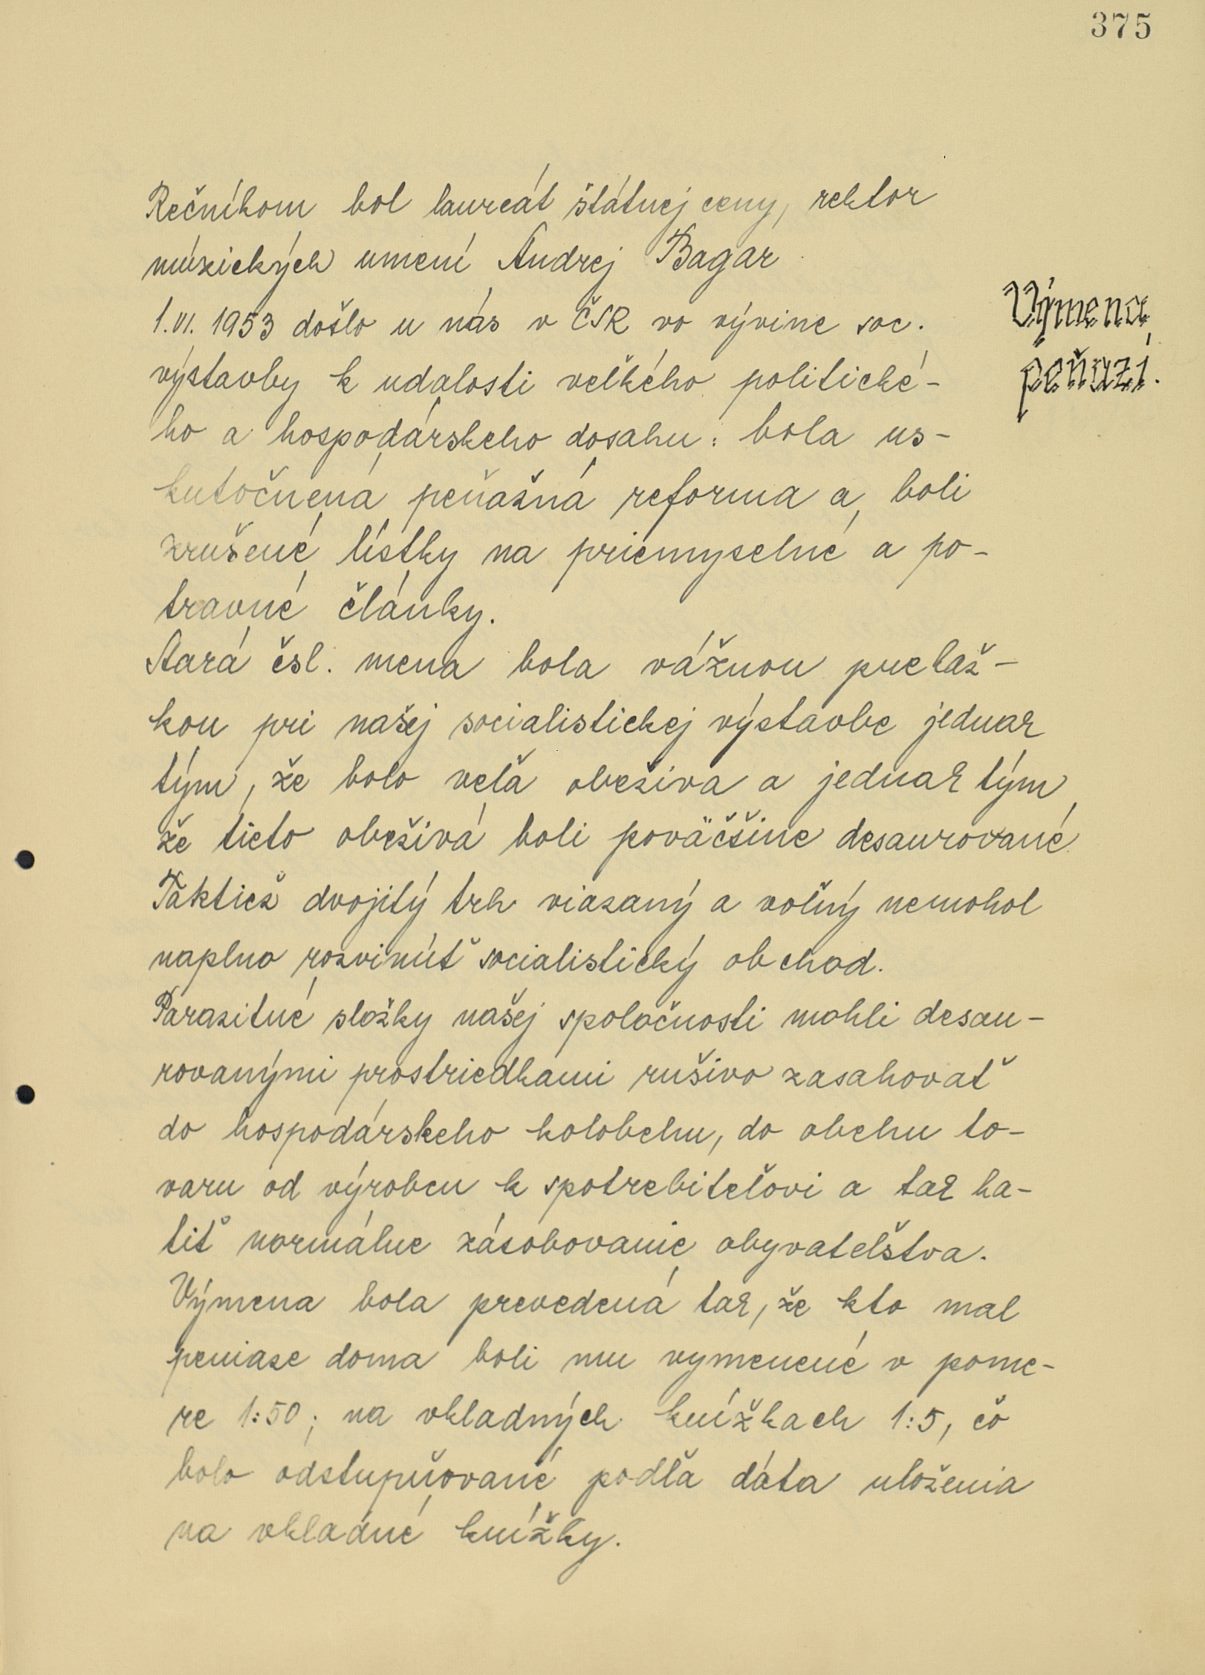 375
Rečníkom bol laureát štátnej ceny, rektor
múzických umení Andrej Bagar
1.VI. 1953 došlo u nás v ČSR vo vývine soc.
Výmena
výstavby k udalosti veľkého politické-
peňazí.
ho a hospodárskeho dosahu: bola us-
kutočnená peňažná reforma a boli
zrušené lístky na priemyselné a po-
travné články.
Stará čsl. mena bola vážnou prekáž-
kou pri našej socialistickej výstavbe jednak
tým, že bolo veľa obeživa a jednak tým,
že tieto obeživá boli poväčšine desaurované.
Taktiež dvojitý trh viazaný a voľný nemohol
naplno rozvinúť socialistický obchod.
Parazitné složky našej spoločnosti mohli desau-
rovanými prostriedkami rušivo zasahovať
do hospodárskeho kolobehu, do obehu to-
varu od výrobcu k spotrebiteľovi a tak ha-
tiť normálne zásobovanie obyvateľstva.
Výmena bola prevedená tak, že kto mal
peniaze doma boli mu vymenené v pome-
re 1:50; na vkladných knížkach 1:5, čo
bolo odstupňované podľa dáta uloženia
na vkladné knížky.